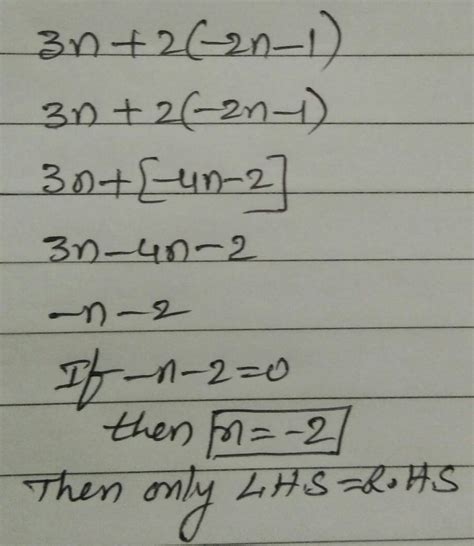 3n+2(-2n-1)
3n+2(-2n-1)
3n+[-4n-2]
3n-4n-2
-n-2
If -n-2=0
then n=-2
Then only L.H.S=R.H.S